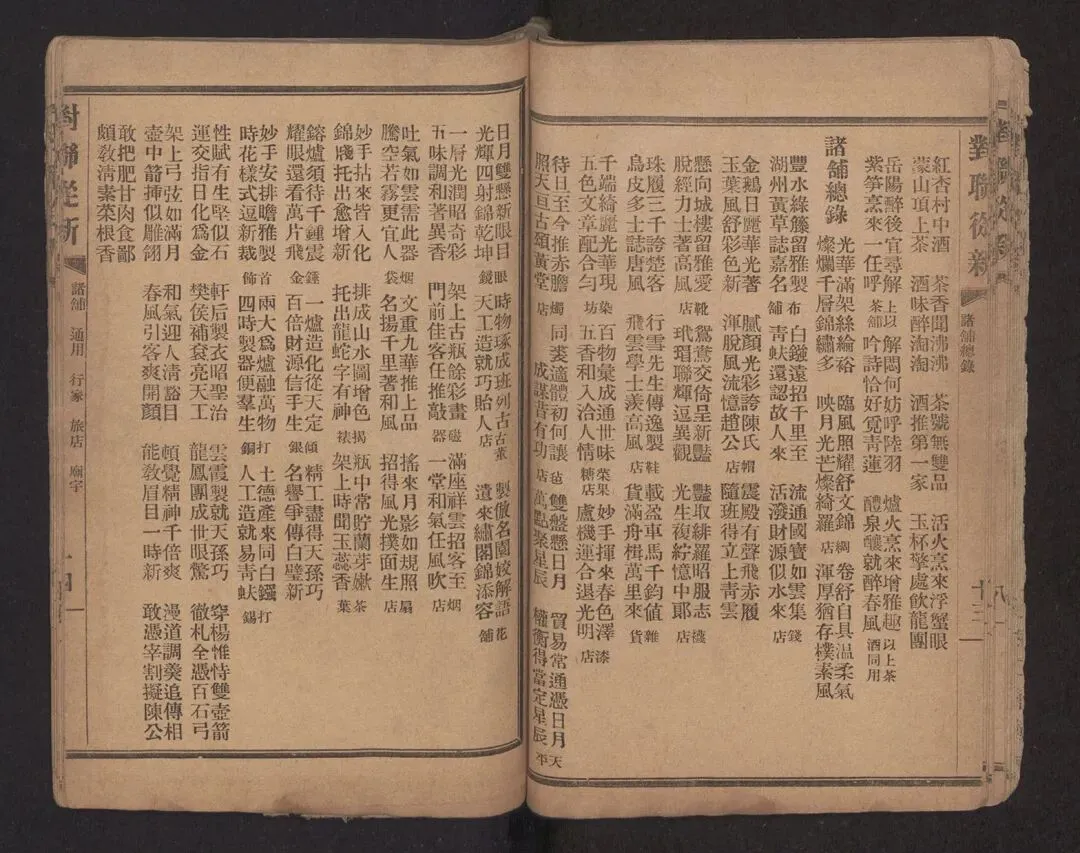 對聯從新
諸舖總錄
十三
紅杏村中酒　茶香聞沸沸　茶號無雙品　活火烹來浮蟹眼
蒙山頂上茶　酒味醉淘淘　酒推第一家　玉杯擎處飲龍團
岳陽醉後宜尋解　以上　解悶何妨呼陸羽　爐火烹來增雅趣　以上茶
紫笋烹來一任呼　茶舖　吟詩恰好覓靑蓮　醴泉釀就醉春風　酒同用
諸舖總錄　光華滿架絲綸裕　臨風照耀舒文錦　綢　卷舒自具温柔氣
燦爛千層錦繡多　映月光芒燦綺羅　店　渾厚猶存樸素風
豐水綠籐留雅製　布　白鏹遠招千里至　流通國寶如雲集　錢
湖州黃草誌嘉名　舖　靑蚨還認故人來　活潑財源似水來　店
金鵝日麗華光著　膩顏光彩誇陳氏　帽　震殿有聲飛赤履
玉葉風舒彩色新　渾脫風流憶趙公　店　隨班得立上靑雲
懸向城樓留雅愛　靴　鴛鴦交倚呈新豔　豔取緋羅昭服志　襪
脫經力士著高風　店　玳瑁聯輝逗異觀　光生複綺憶中郞　店
珠履三千誇楚客　行雪先生傳逸製　鞋　載盈車馬千鈞値　雜
鳥皮多士誌唐風　飛雲學士羨高風　店　貨滿舟楫萬里來　貨
千端綺麗光華現　染　百物彙成通世味　菜果　妙手揮來春色澤　漆
五色文章配合勻　坊　五香和入洽人情　糖店　盧機運合退光明　店
待旦至今推赤膽　燭　同裘適體初何讓　毡　雙盤懸日月　貿易常通憑日月　天
照天亘古頌黃堂　店　成謀昔有功　店　萬點聚星辰　權衡得當定星辰　平
日月雙懸新眼目　眼　時物琢成班列古　古董　製倣名園姣解語　花
光輝四射錦乾坤　鏡　天工造就巧貽人　店　遺來繡閣錦添容　舖
一層光潤昭奇彩　架上古瓶餘彩畫　磁　滿座祥雲招客至　烟
五味調和著異香　門前佳客任推敲　器　一堂和氣任風吹　店
吐氣如雲需此器　烟　文重九華推上品　搖來月影如規照　扇
騰空若霧更宜人　袋　名揚千里著和風　招得風光撲面生　店
妙手拈來皆入化　排成山水圖增色　揭　瓶中常貯蘭芽嫰　茶
錦牋托出愈增新　托出龍蛇字有神　裱　架上時聞玉蕊香　葉
鎔爐須待千錘震　錘　一爐造化從天定　傾　精工盡得天孫巧
耀眼還看萬片飛　金　百倍財源信手生　銀　名譽爭傳白璧新
妙手安排瞻雅製　首　兩大爲爐融萬物　打　土德產來同白鏹　打
時花樣式逗新裁　飾　四時製器便羣生　銅　人工造就易靑蚨　錫
性賦有生堅似石　軒后製衣昭聖治　雲霞製就天孫巧　穿楊惟恃雙壺箭
運交指日化爲金　樊侯補袞亮天工　龍鳳團成世眼驚　徹札全憑百石弓
架上弓弦如滿月　和氣迎人清豁目　頓覺精神千倍爽　漫道調羹追傳相
壺中箭揷似雕翎　春風引客爽開顏　能敎眉目一時新　敢憑宰割擬陳公
敢把肥甘肉食鄙
頗敎淸素菜根香
對聯從新
諸舖　通用　行家　旅店　廟宇